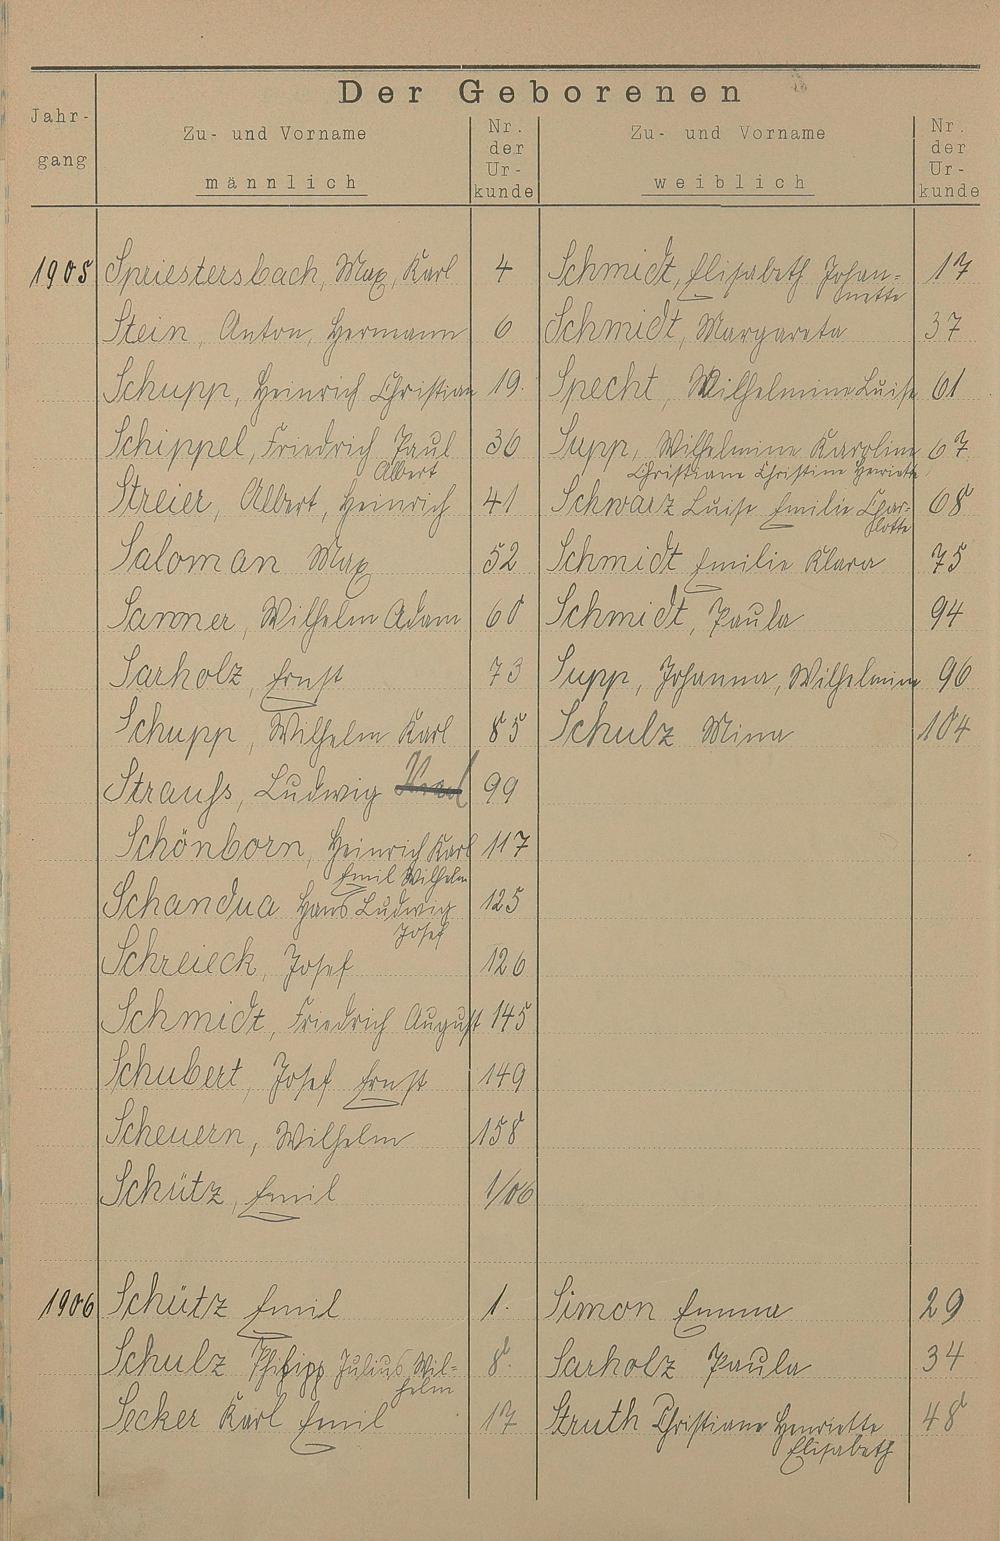 Der Geborenen
Jahr-
gang
Zu- und Vorname
männlich
Nr.
der
Ur-
kunde
Zu- und Vorname
weiblich
Nr.
der
Ur-
kunde
1905 Spriestersbach, Max, Karl 4 Schmidt, Elisabeth Johan- 17
nette
Stein, Anton, Hermann 6 Schmidt, Margareta 37
Schupp, Heinrich Christian 19. Specht, Wilhelmine Luise 61
Schippel, Friedrich Paul 36 Supp, Wilhelmine Karoline 67
Albert Christiane Christine Henriette
Streier, Albert, Heinrich 41 Schwarz Luise Emilie Char- 68
lotte
Saloman Max 52 Schmidt Emilie Klara 75
Sanner, Wilhelm Adam 60 Schmidt, Paula 94
Sarholz, Ernst 73 Supp, Johanna, Wilhelmine 96
Schupp, Wilhelm Karl 85 Schulz Mina 104
Strauss, Ludwig Karl 99
Schönborn, Heinrich Karl 117
Emil Wilhelm
Schandua Hans Ludwig 125
Josef
Schreieck, Josef 126
Schmidt, Friedrich August 145
Schubert, Josef Ernst 149
Scheuern, Wilhelm 158
Schütz, Emil 1/06
1906 Schütz Emil 1. Simon Emma 29
Schulz Philipp Julius Wil- 8. Sarholz Paula 34
helm
Secker Karl Emil 17 Struth Christiane Henriette 48
Elisabeth